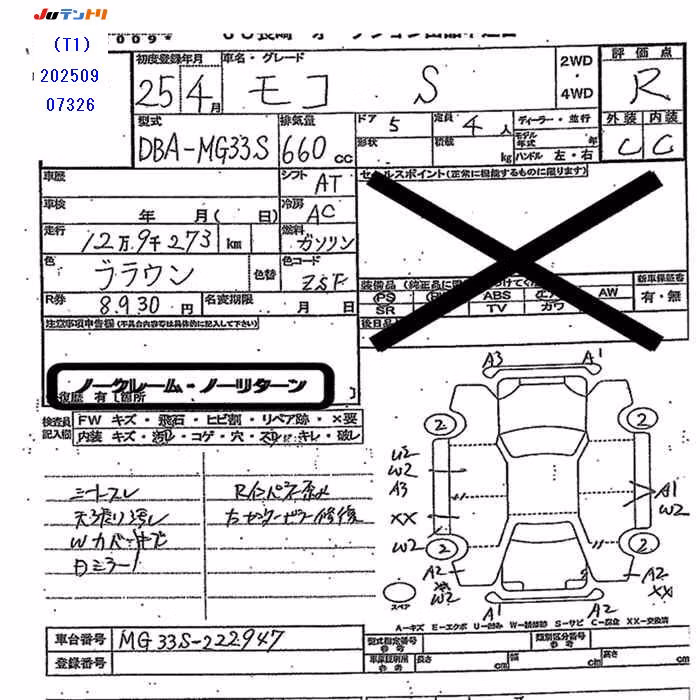 Juテントリ
(T1)
202509
07326
初度登録年月
車名・グレード
2WD
・
4WD
評価点
25 4月
モコ S
R
型式
排気量
ドア 5
定員 4人
ディーラー・並行
外装 内装
DBA-MG33S
660cc
形状
積載 kg
モデル年式 年
ハンドル 左・右
C C
車歴
シフト AT
セールスポイント(正常に機能するものに限ります)
車検 年 月( 日)
冷房 AC
走行 12万9千273 km
燃料 ガソリン
色 ブラウン 色替
色コード
R券 8,930 円
名変期限 月 日
新車保証書
有・無
PS
ABS
AW
SR
TV
注意事項申告欄(不具合内容等は具体的に記入して下さい)
ノークレーム・ノーリターン
検査員記入欄
FW キズ・飛石・ヒビ割・リペア跡・×要
内装 キズ・汚れ・コゲ・穴・スリ・キレ・破レ
シートスレ
天張り汚レ
Wカバーキズ
Dミラー
右センターピラー修復
A3 A1
2 2
U2
W2
A3
XX
W2
A1
W2
2 2
A2
W2
A2
XX
スペア
A1 A2
A-キズ E-エクボ U-凹み W-補修跡 S-サビ C-腐食 XX-交換済
車台番号 MG33S-222947
型式指定番号
参考
類別区分番号
参考
登録番号
長さ cm 幅 cm 高さ cm